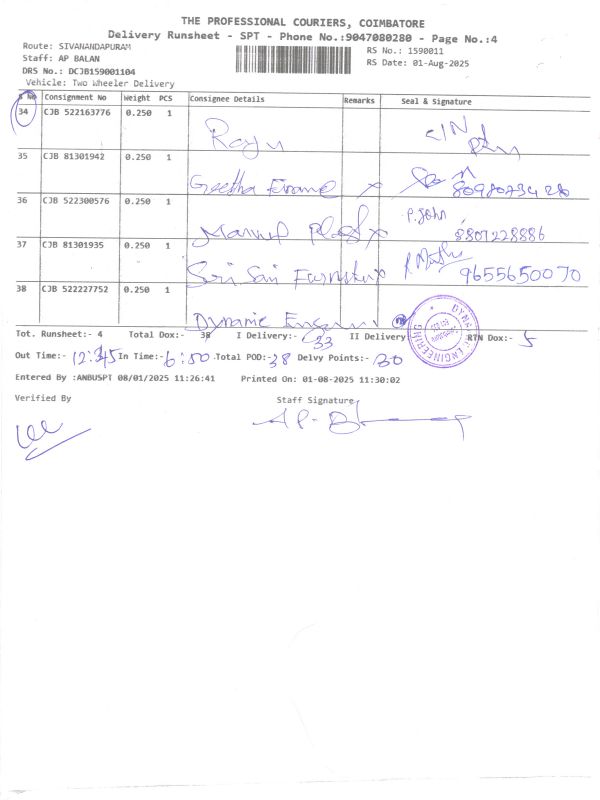 THE PROFESSIONAL COURIERS, COIMBATORE
Delivery Runsheet - SPT - Phone No.:9047080280 - Page No.:4
Route: SIVANANDAPURAM
RS No.: 1590011
Staff: AP BALAN
RS Date: 01-Aug-2025
DRS No.: DCJB159001104
Vehicle: Two Wheeler Delivery
S No Consignment No Weight PCS Consignee Details Remarks Seal & Signature
34 CJB 522163776 0.250 1 Raju
35 CJB 81301942 0.250 1 Geetha
36 CJB 522300576 0.250 1 P. John 8807228886
37 CJB 81301935 0.250 1 Sri Sai 9655650070
38 CJB 522227752 0.250 1 Dynamic
Tot. Runsheet:- 4 Total Dox:- 38 I Delivery:- 33 II Delivery RTN Dox:- 5
Out Time:- 12:45 In Time:- 6:50 Total POD:- 38 Delvy Points:- 30
Entered By :ANBUSPT 08/01/2025 11:26:41 Printed On: 01-08-2025 11:30:02
Verified By Staff Signature